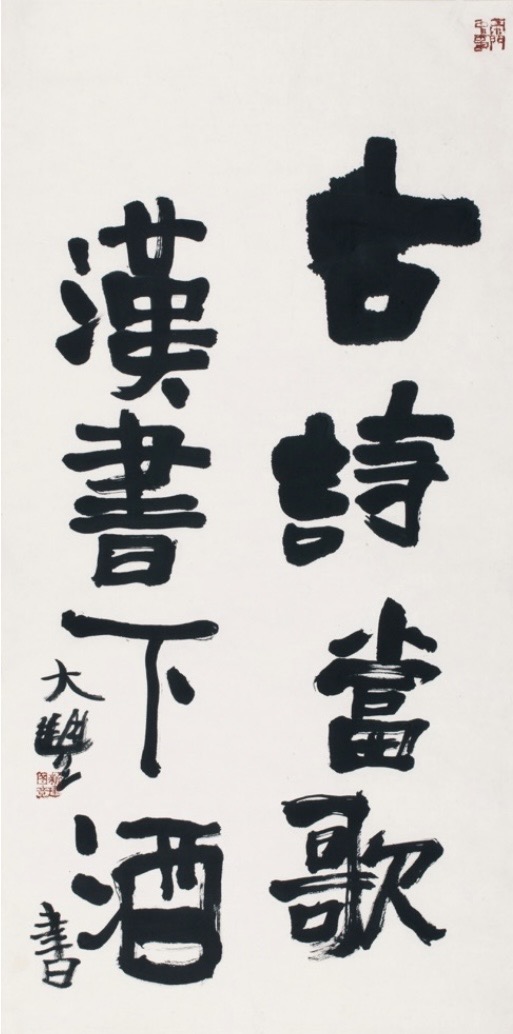 古詩當歌
漢書下酒
大豐
書